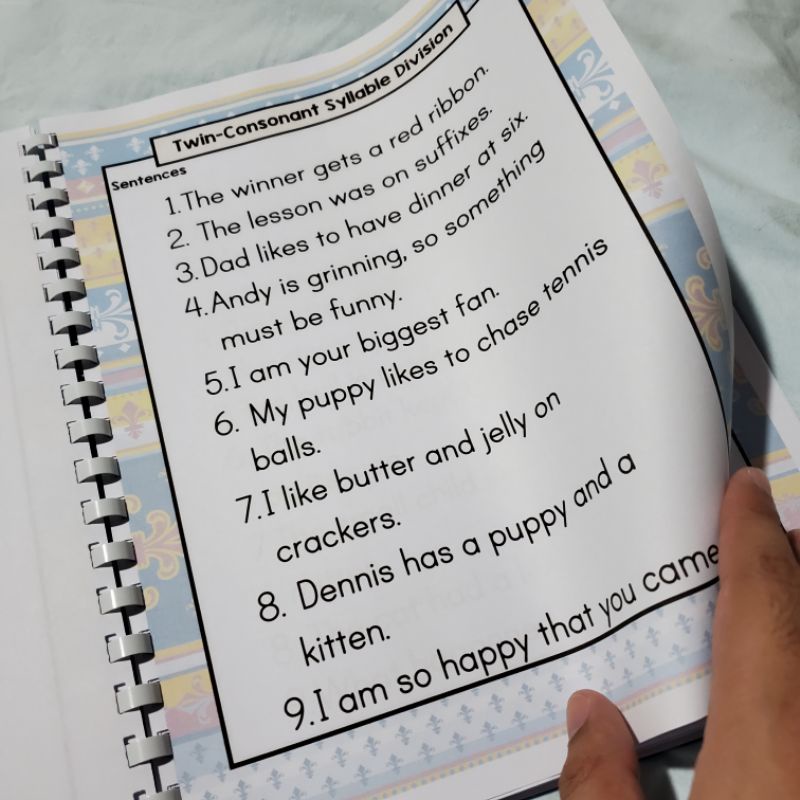 Twin-Consonant Syllable Division
Sentences
1.The winner gets a red ribbon.
2. The lesson was on suffixes.
3.Dad likes to have dinner at six.
4.Andy is grinning, so something
must be funny.
5.I am your biggest fan.
6. My puppy likes to chase tennis
balls.
7.I like butter and jelly on
crackers.
8. Dennis has a puppy and a
kitten.
9.I am so happy that you came